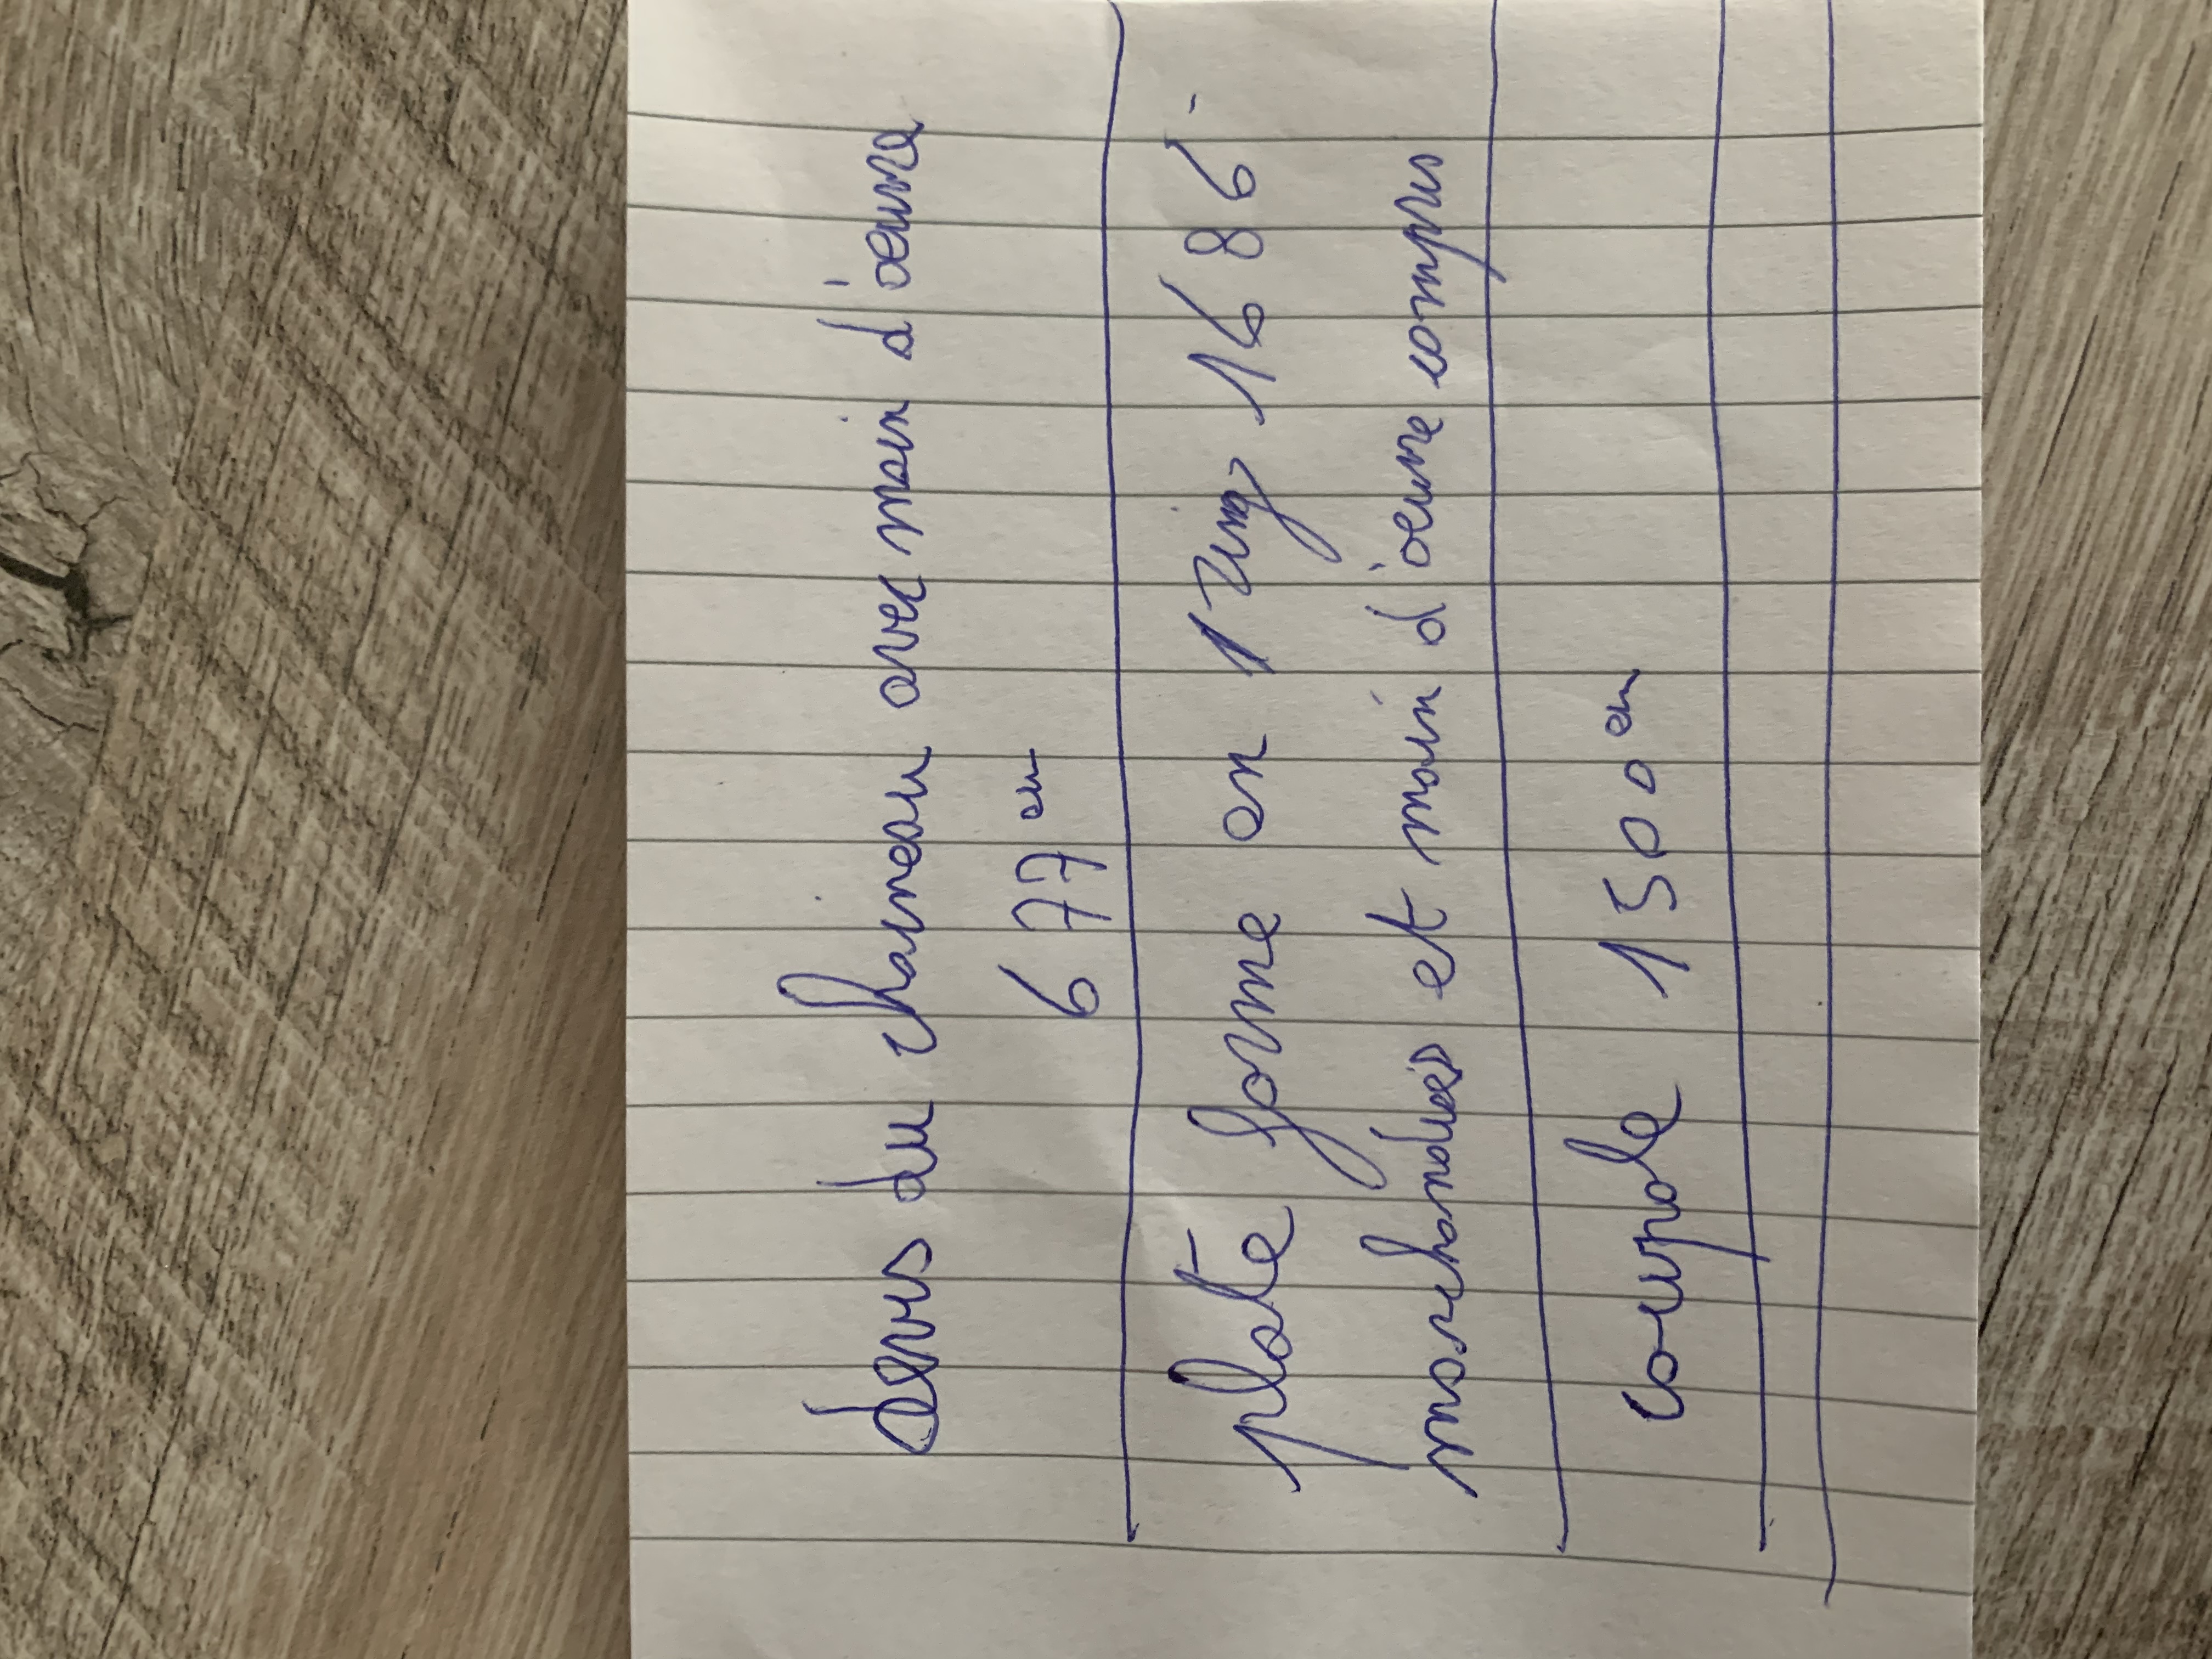 devis du chameau avec main d'œuvre
677 eu
plate forme en 1 zing 1686-
marchandies et main d'œuvre compris
coupole 1500 eu